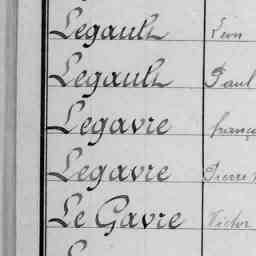 Legault Léon
Legault Paul
Legavre
Legavre Pierre
Le Gavre Victor